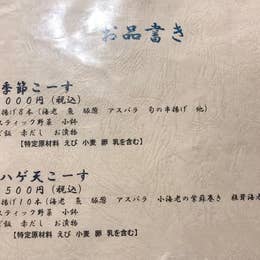 お品書き
季節こーす
000円(税込)
揚げ8本(海老 魚 豚 アスパラ 旬の串揚げ 他)
スティック野菜 小鉢
ご飯 赤だし お漬物
【特定原材料 えび 小麦 卵 乳を含む】
ハゲ天こーす
500円(税込)
揚げ10本(海老 魚 豚 アスパラ 小海老の紫蘇巻き
スティック野菜 小鉢
ご飯 赤だし お漬物
【特定原材料 えび 小麦 卵 乳を含む】